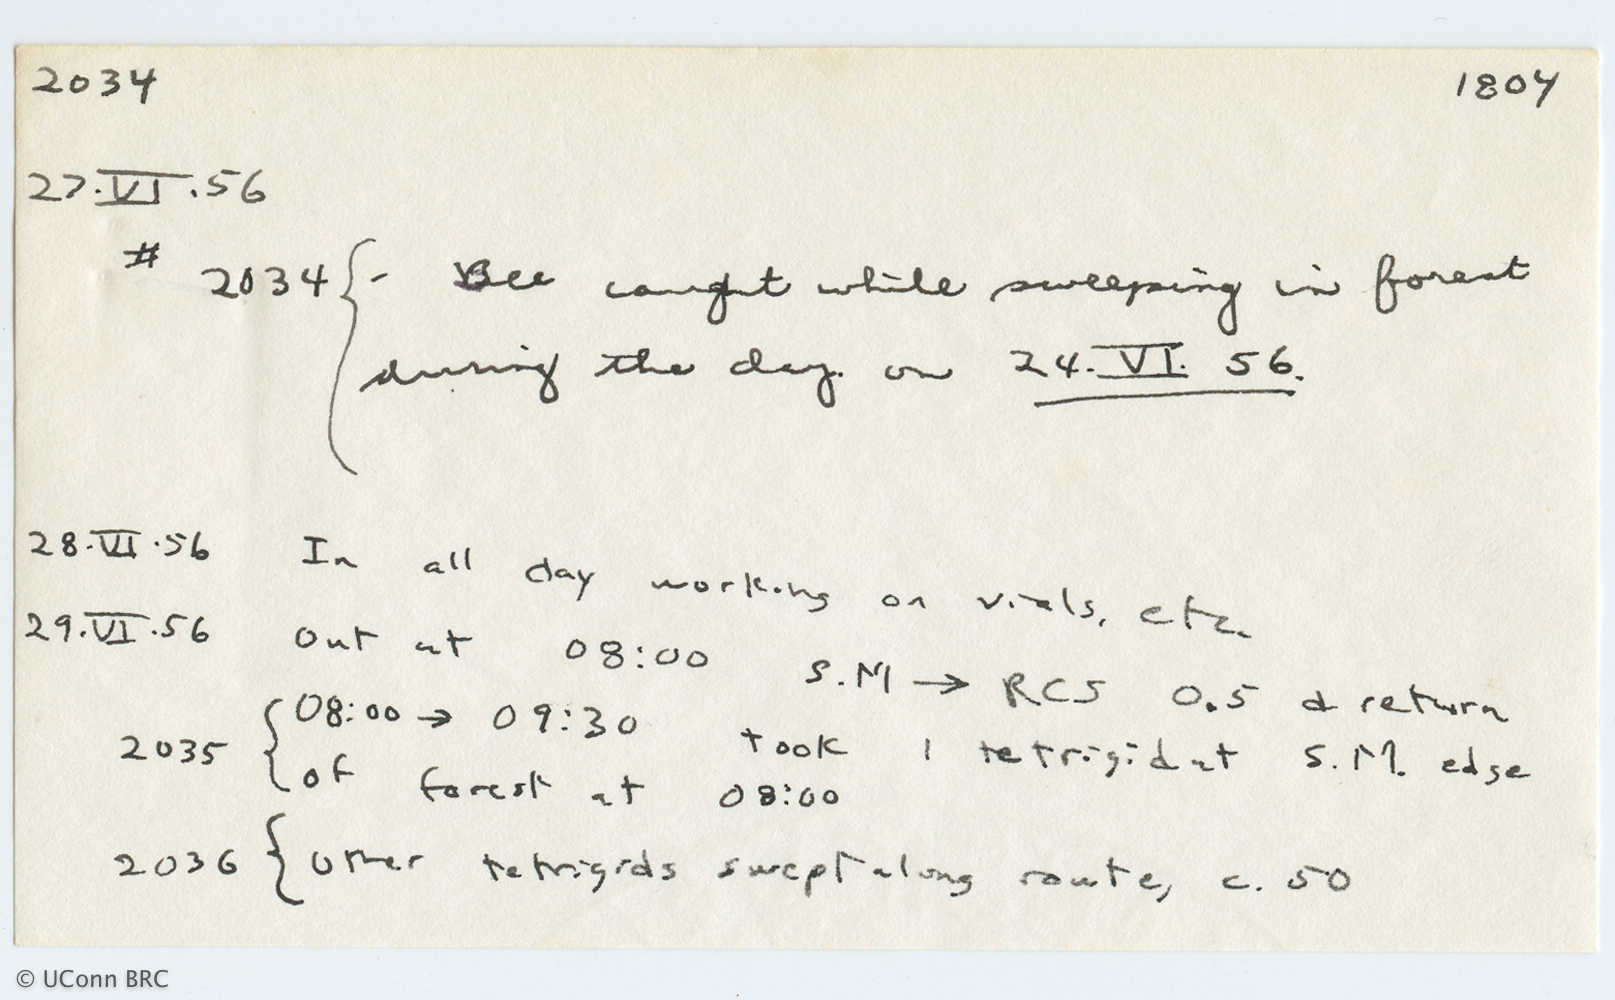 2034 1804
27.VI.56
# 2034 { - Bee caught while sweeping in forest
during the day. on 24.VI. 56.
28.VI.56 In all day working on vials, etc.
29.VI.56 Out at 08:00 S.M → RCS 0.5 & return
2035 { 08:00 → 09:30 took 1 tetrigid at S.M. edge
of forest at 08:00
2036 { Other tetrigids swept along route, c. 50
© UConn BRC